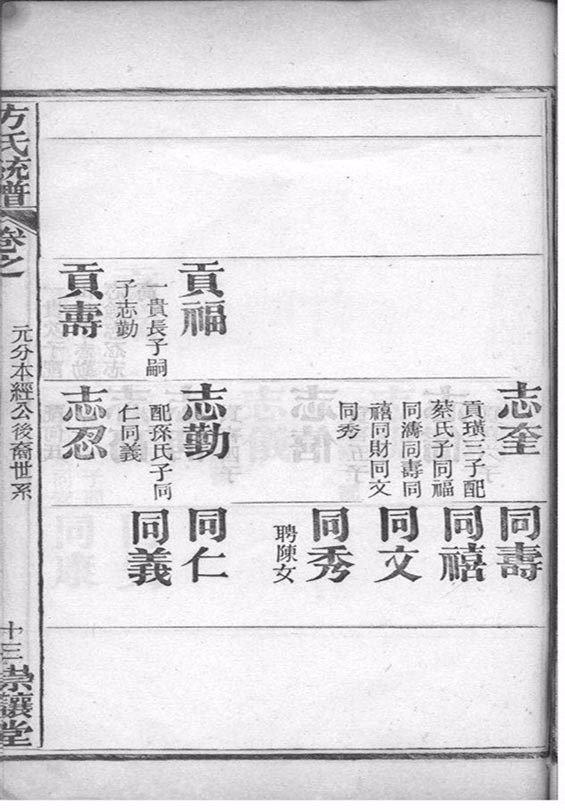 志奎
貢璜三子配
蔡氏子同福
同濤同壽同
禧同財同文
同秀
同壽
同禧
同文
同秀
聘陳女
貢福
一貴長子嗣
子志勤
志勤
配孫氏子同
仁同義
同仁
同義
貢壽
志忍
方氏統譜
卷之
元分本經公後裔世系
十三
崇讓堂